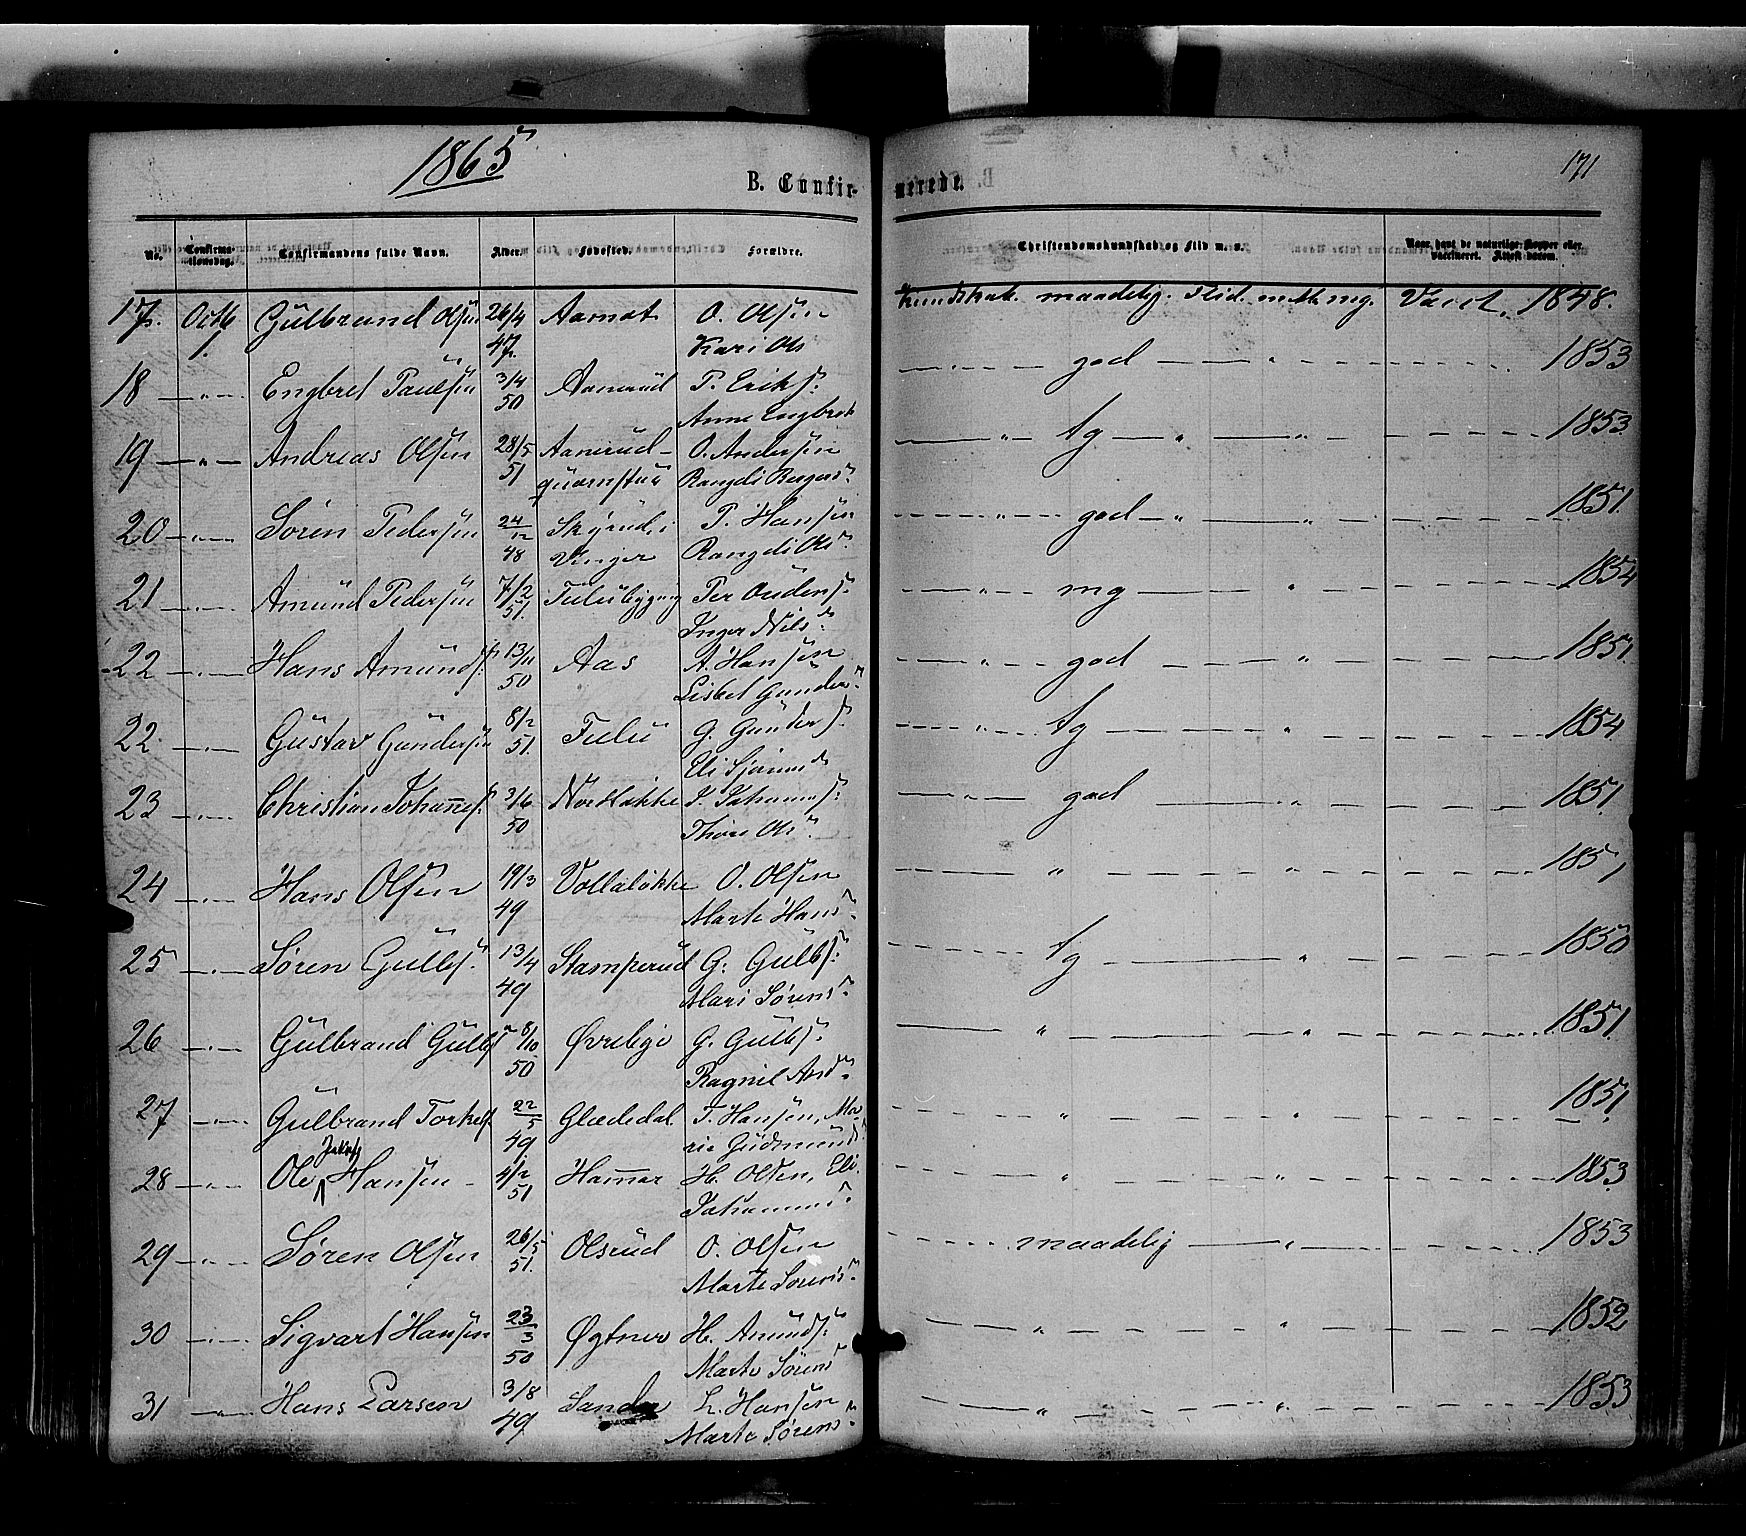 1865
171
B. Confir-
merede.
No. Confirma-tionsdag. Confirmandens fulde Navn. Alder. Fødested. Forældre. Christendomskundskab og Flid m. v. Naar havt de naturlige Kopper eller vaccineret. Attest datum.
17. Octb 1. Gülbrand Olsen 26/4 47. Aamot O. Olsen Kari Ols Kundskab maadelig. Flid. meth mg. Vacct. 1848.
18 — " — Engbret Paulsen 3/4 50 Aamrud P. Eriks: Anne Engbret — " — god — " — 1853
19 — " — Andreas Olsen 28/5 51 Aamrud- quærnstue O. Andersen Rangdi — " — tg — " — " — 1853
20 — " — Sören Pedersen 24/12 48 Skyrud i Vinger P. Hansen Rangdi Ols: — " — god — " — " — 1851.
21 — " — Amünd Pedersen 7/2 51. Tulubygging Per Oudens: Inger Nils: — " — mg — " — 1854
22 — " — Hans Amünds: 13/11 50 Aas A. Hansen Lisbet Gunders: — " — god — " — 1851.
22 — " — Güstav Gündersen 8/2 51. Tulu G. Günders: Eli — " — tg — " — 1854
23 — " — Christian Johans: 3/6 50 Nordløkke J. Johanns: Thore Ols: — " — god — " — 1851.
24 — " — Hans Olsen 19/3 49 Vollaløkke O. Olsen Marte Hans: — " — 1851,
25 — " — Søren Gülbs: 13/4 49 Stamperud G. Gülbs: Mari Sørens: — tg — " — 1850
26 — " — Gülbrand Gülbs: 8/10 50 Øvrebige G. Gülbs: Ragnil And: — " — " — 1851.
27 — " — Gülbrand Torkels: 22/5 49. Glædedal T. Hansen, Ma- rie Güdmünd — " — " — 1851.
28 — " — Ole Hansen - 4/2 51 Hammer H. Olsen, Eli Johannes: — " — " — 1853
29 — " — Søren Olsen 26/5 51. Olsrüd O. Olsen Marte Sørens: — maadelig — " — 1853
30 — " — Sigvart Hansen 23/3 50 Øgtner H. Amünds: Marte Sørens — " — " — 1852
31 — " — Hans Larsen 3/8 49. Sander L. Hansen Marte Sørens — " — " — 1853